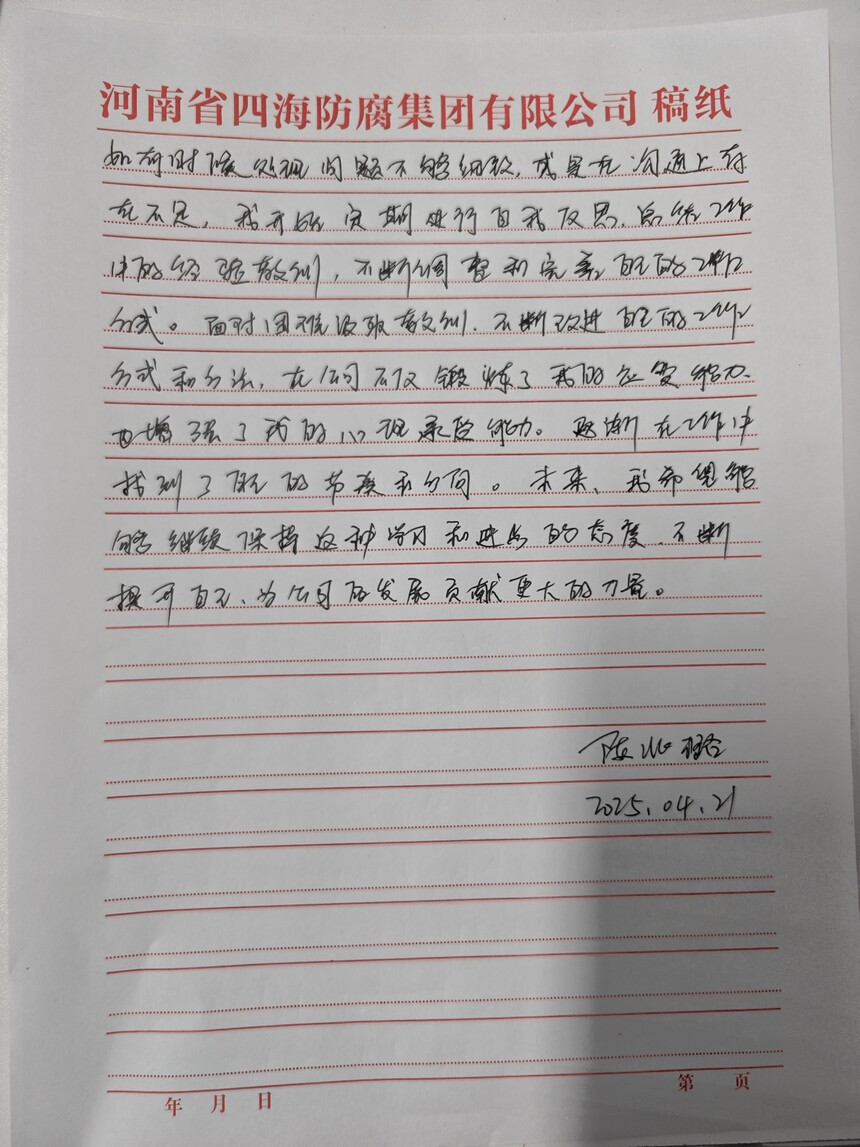 河南省四海防腐集团有限公司 稿纸
如有时候处理问题不够细致，或是在沟通上存
在不足，我开始定期进行自我反思，总结工作
中的经验教训，不断调整和完善自己的工作
方式。面对困难汲取教训，不断改进自己的工作
方式和方法，在公司不仅锻炼了我的应变能力、
也增强了我的心理承受能力。逐渐在工作中
找到了自己的节奏和方向。未来，我希望能
够继续保持这种学习和进步的态度，不断
提升自己、为公司的发展贡献更大的力量。
陈
2025.04.21
年 月 日
第 页